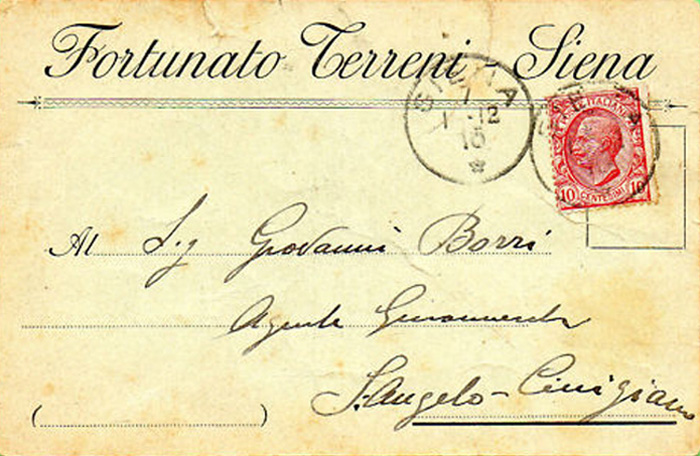 Fortunato Terreni - Siena
SIENA
1
1-12
10
POSTE ITALIANE
10 CENTESIMI 10
Al Sig Giovanni Borri
Agente
S. Angelo - Cinigiano
( )